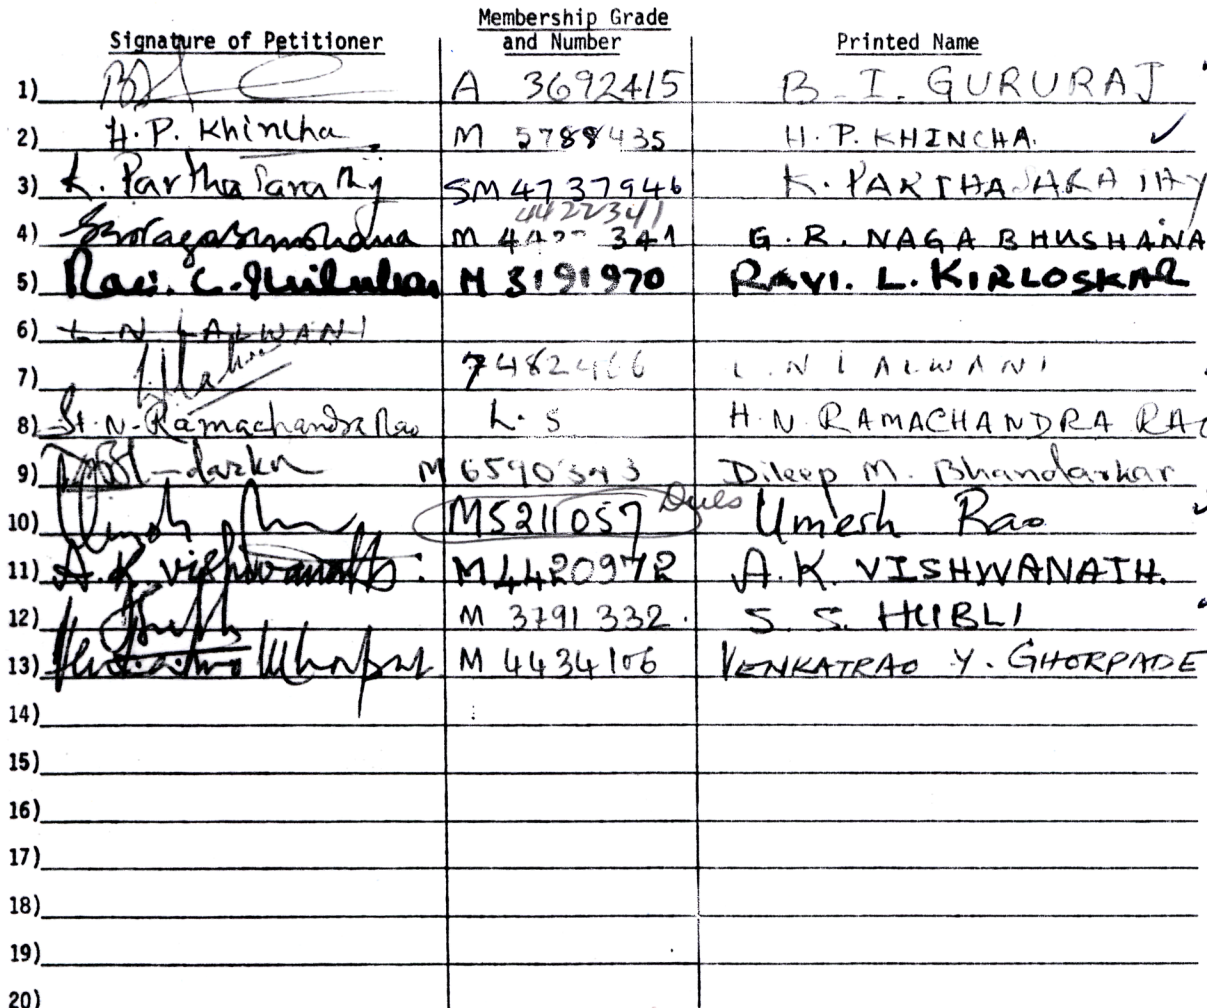 Signature of Petitioner Membership Grade and Number Printed Name
1) A 3692415 B. I. GURURAJ
2) H.P. Khincha M 5788435 H. P. KHINCHA. ✓
3) K. Parthasarathy SM 4737946 K. PARTHASARATHY
44223411
4) M 4422 341 G. R. NAGABHUSHANA
5) M 3191970 RAVI. L. KIRLOSKAR
6) L. N LALWANI
7) 7482466 L N LALWANI
8) H. N. Ramachandra Rao L. S H. N. RAMACHANDRA RAO
9) M 6590393 Dileep M. Bhandarkar
10) M5211057 Dues Umesh Rao
11) A.K. Vishwanath. M4420972 A. K. VISHWANATH.
12) M 3791332. S. S. HUBLI
13) M 4434106 VENKATRAO Y. GHORPADE
14)
15)
16)
17)
18)
19)
20)